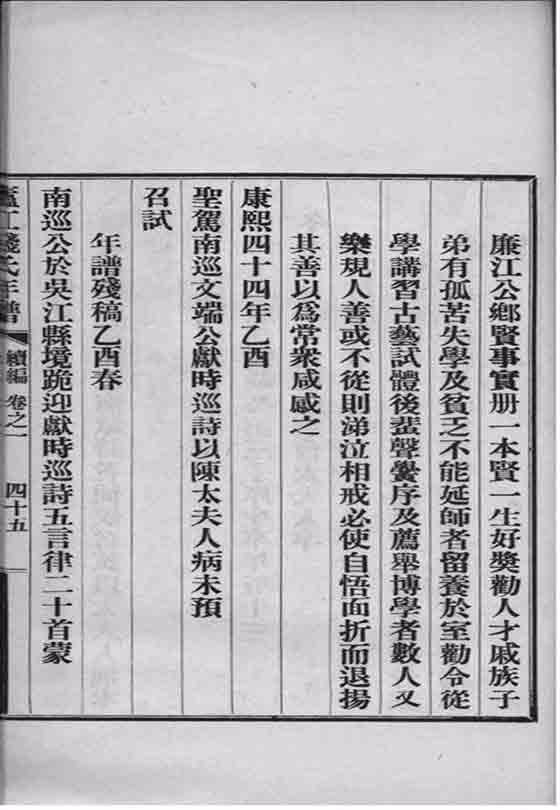 廉江公鄉賢事實册一本賢一生好奬勸人才戚族子
弟有孤苦失學及貧乏不能延師者留養於室勸令從
學講習古藝試體後蜚聲黌序及薦舉博學者數人又
樂規人善或不從則涕泣相戒必使自悟面折而退揚
其善以爲常衆咸感之
康熙四十四年乙酉
聖駕南巡文端公獻時巡詩以陳太夫人病未預
召試
年譜殘稿乙酉春
南巡公於吳江縣境跪迎獻時巡詩五言律二十首蒙
廬江錢氏年譜 續編 卷之一 四十五